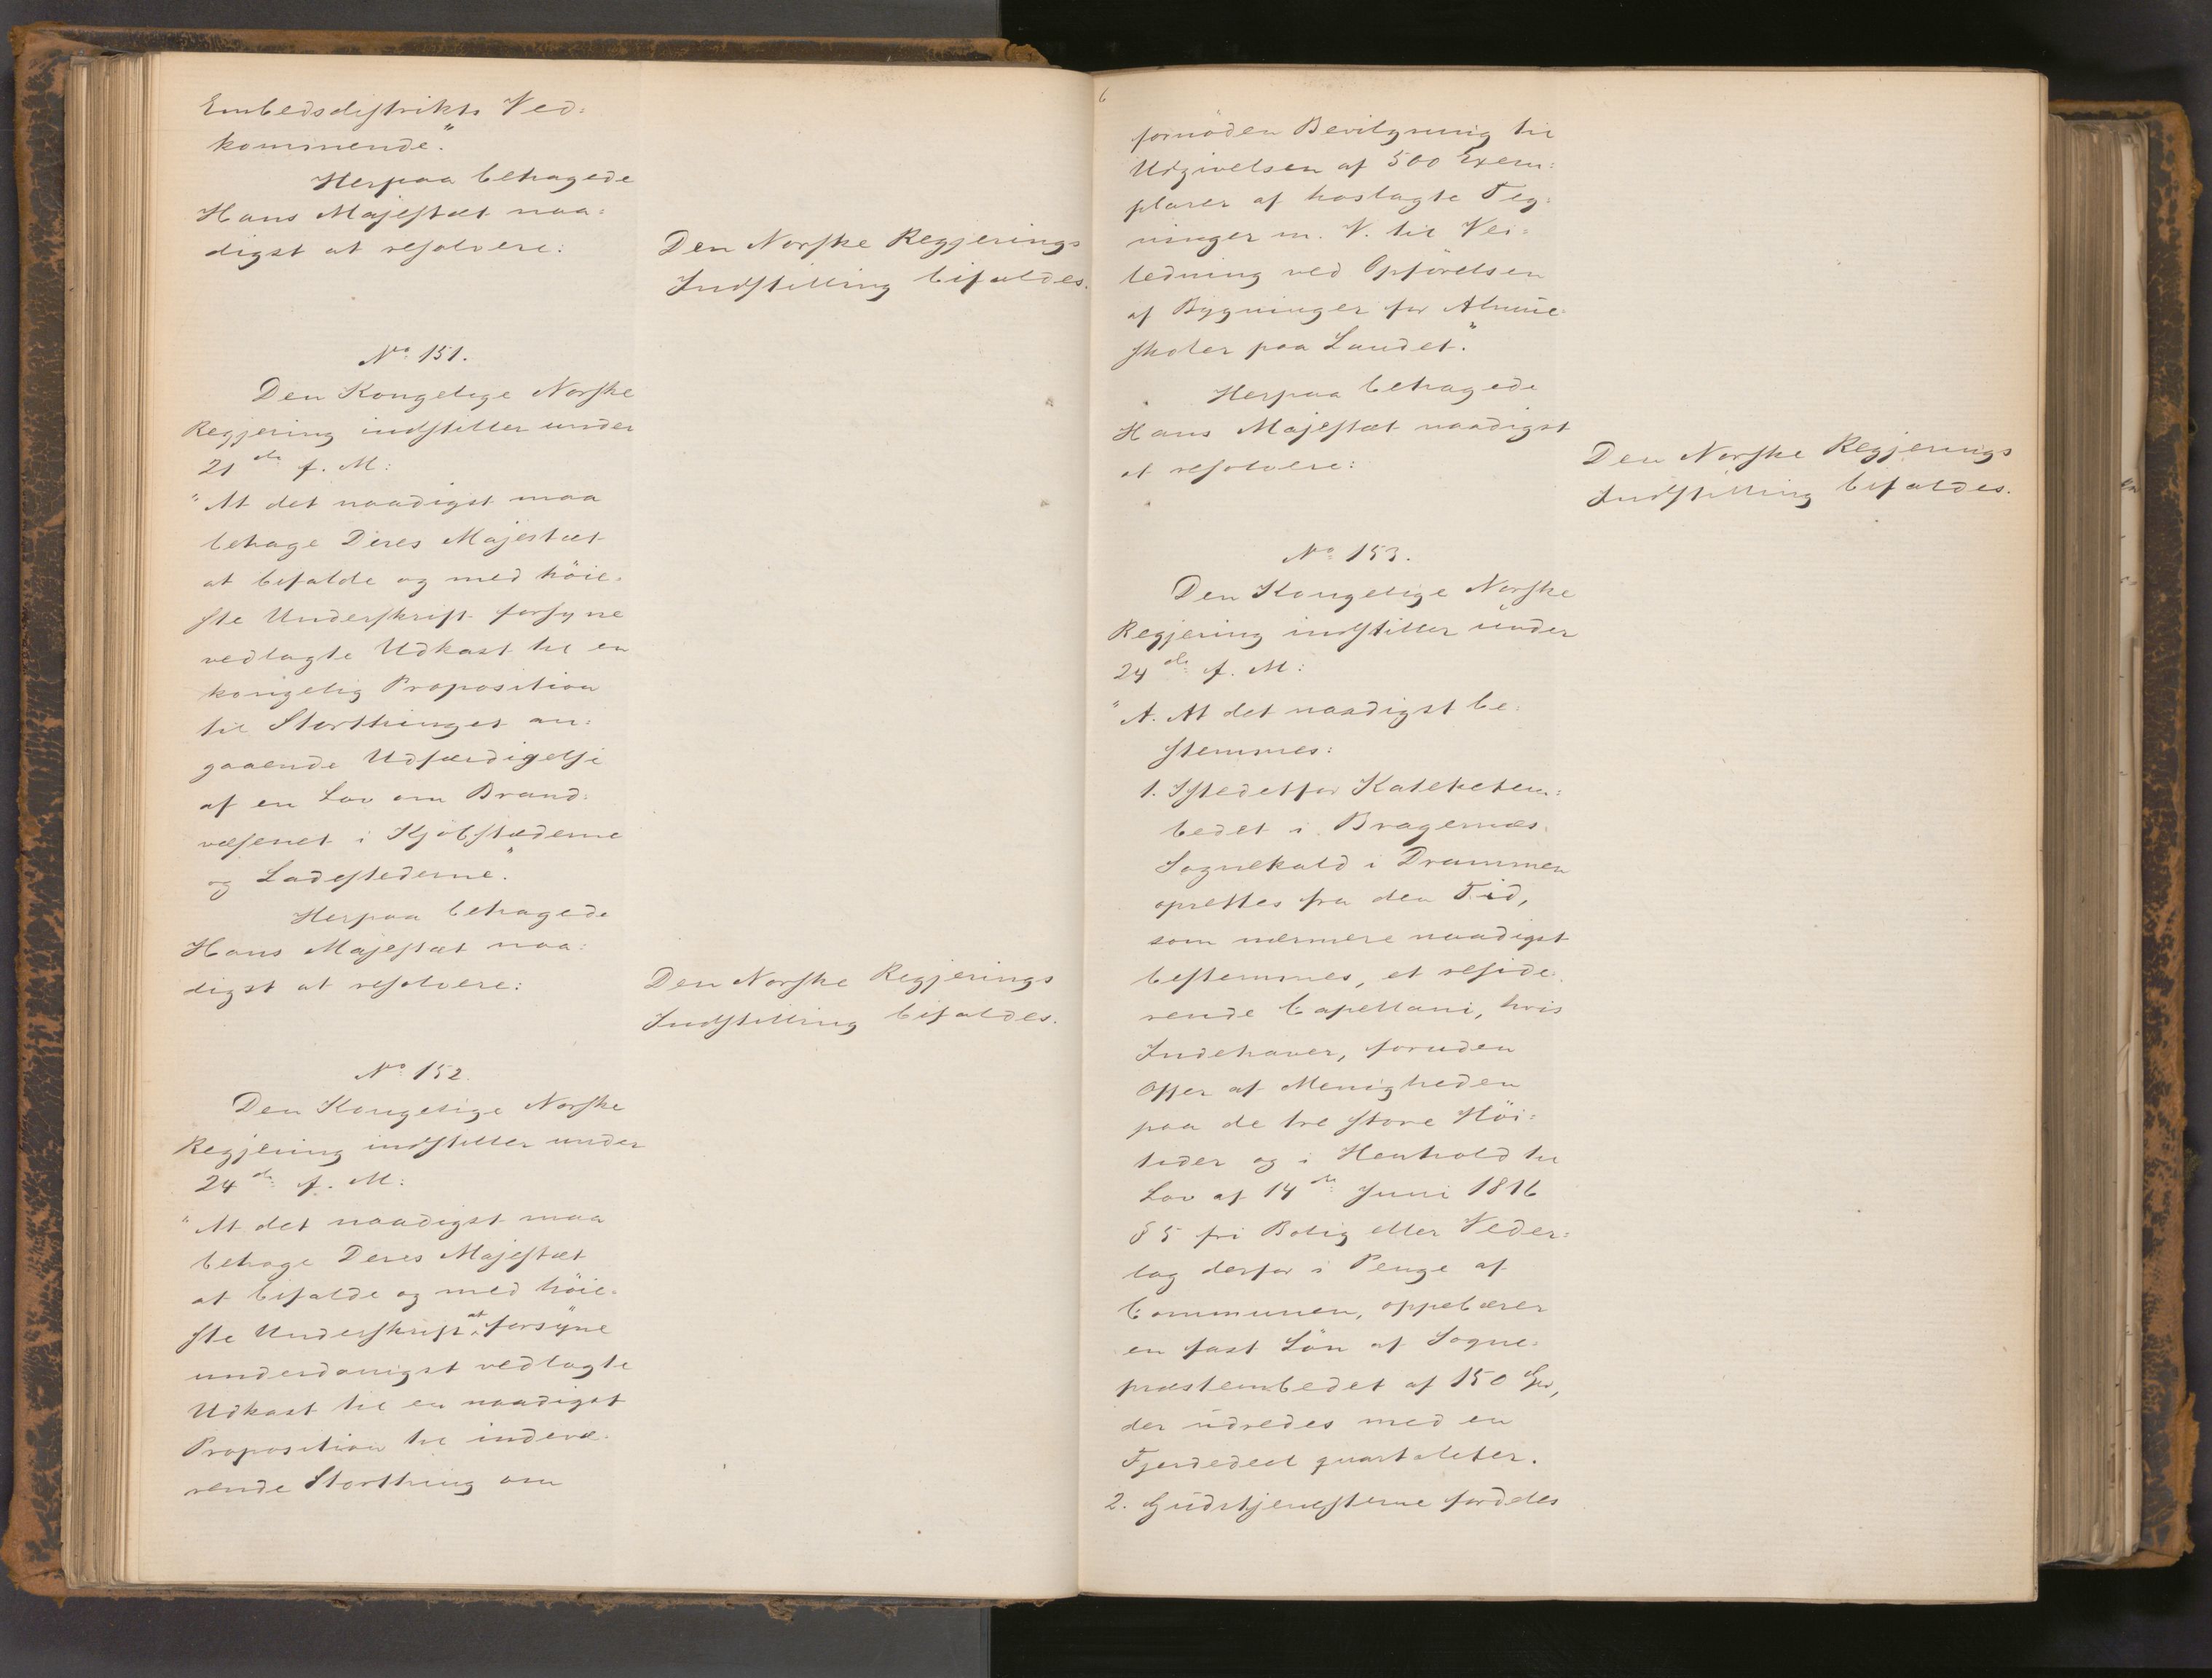 Embedsdistrikts Ved-
kommende."
Herpaa behagede
Hans Majestæt naa-
digst at resolvere:
Den Norske Regjerings
Indstilling bifaldes.
No 151.
Den Kongelige Norske
Regjering indstiller under
21de f. M:
"At det naadigst maa
behage Deres Majestæt
at bifalde og med høie-
ste Underskrift forsyne
vedlagte Udkast til en
kongelig Proposition
til Storthinget an-
gaaende Udfærdigelse
af en Lov om Brand-
væsenet i Kjøbstæderne
og Ladestederne."
Herpaa behagede
Hans Majestæt naa-
digst at resolvere:
Den Norske Regjerings
Indstilling bifaldes.
No 152.
Den Kongelige Norske
Regjering indstiller under
24de f. M:
"At det naadigst maa
behage Deres Majestæt
at bifalde og med høie-
ste Underskrift at forsyne
underdanigst vedlagte
Udkast til en naadigst
Proposition til indevæ-
rende Storthing om
6
fornøden Bevilgning til
Udgivelsen af 500 Exem-
plarer af hoslagte Teg-
ninger m. V. til Vei-
ledning ved Opførelsen
af Bygninger for Almue-
skoler paa Landet."
Herpaa behagede
Hans Majestæt naadigst
at resolvere:
Den Norske Regjerings
Indstilling bifaldes.
No 153.
Den Kongelige Norske
Regjering indstiller under
24de f. M:
"A. At det naadigst be-
stemmes:
1. Istedetfor Kateketem-
bedet i Bragernæs
Sognekald i Drammen
oprettes fra den Tid,
som nærmere naadigst
bestemmes, et reside-
rende Capellani, hvis
Indehaver, foruden
Offer af Menigheden
paa de tre store Høi-
tider og i Henhold til
Lov af 14de Juni 1816
§ 5 fri Bolig eller Veder-
lag derfor i Penge af
Communen, oppebærer
en fast Løn af Sogne-
præstembedet af 150 Spd,
der udredes med en
Fjerdedeel quartaliter.
2. Gudstjenesterne fordeles